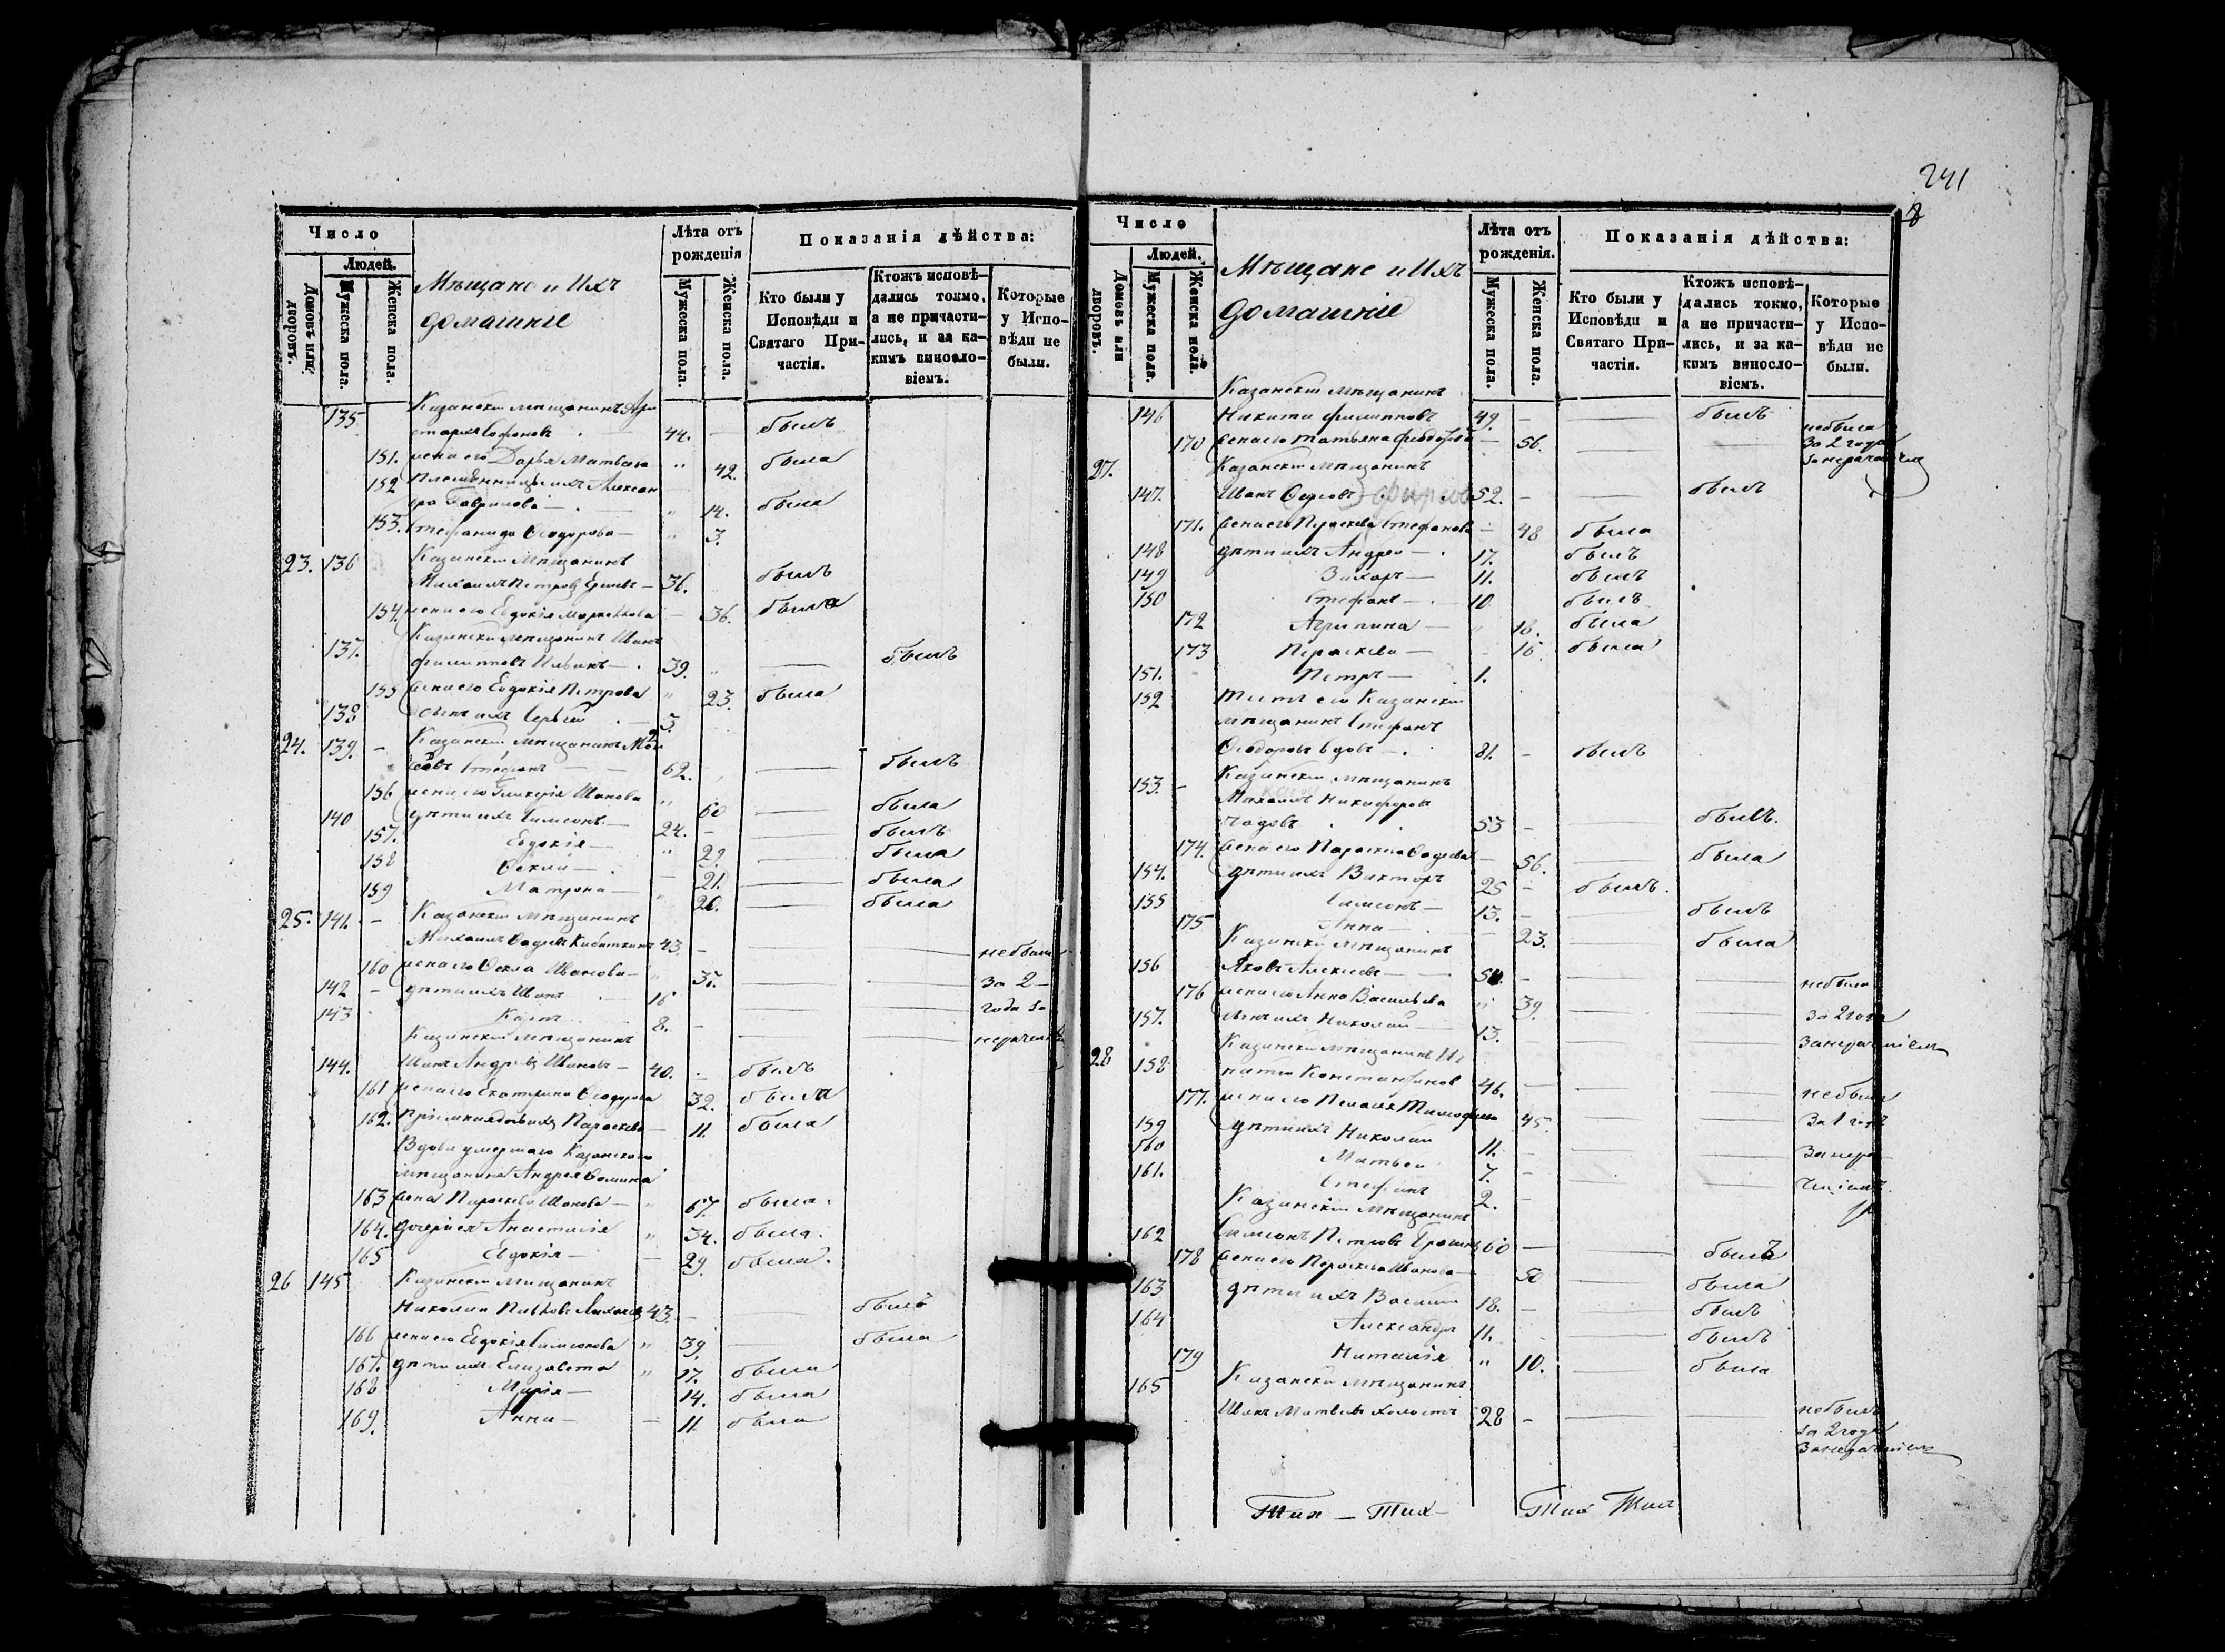 241
8
Число
Людей.
Домовъ или дворовъ.
Мужеска пола.
Женска пола.
Мѣщане и Ихъ
домашніе
Лѣта отъ
рожденія
Мужеска пола.
Женска пола.
Показанія дѣйства:
Кто были у
Исповѣди и
Святаго При-
частія.
Ктожъ исповѣ-
дались токмо,
а не причасти-
лись, и за ка-
кимъ винносло-
віемъ.
Которые
у Испо-
вѣди не
были.
135 Казанскій мѣщанинъ
44. - былъ
151. жена его Дарья Матвѣева " 42. была
152 Племянницы ихъ Алексан
дра Гаврилова - " 14. была
153. Стефанида Ѳеодорова - " 3.
23. 136 Казанскій Мѣщанинъ
Михаилъ Петровъ - 36. былъ
154. жена его Евдокія - 36. была
137. Казанскій мѣщанинъ Иванъ
Филипповъ Ильинъ - 39. " былъ
155 жена его Евдокія Петрова " 23. была
138 сынъ ихъ Сергій - 3
24. 139. - Казанскій мѣщанинъ
Стефанъ 62. былъ
156 жена его Гликерія Иванова " 60 была
140 дѣти ихъ Симеонъ - 24. - былъ
157. Евдокія - " 29. была
158 Ѳекла - 21. была
159 Матрона - " 20. была
25. 141. - Казанскій мѣщанинъ
Михаилъ 43. - небыли
160 жена его Ѳекла Иванова - " 37. за 2
142 - дѣти ихъ Иванъ 16 года за
143 8. -
Казанскій мѣщанинъ
144. Иванъ Андреевъ Ивановъ - 40. - былъ
161 жена его Екатерина Ѳеодорова 32. была
162. Параскева 11. была
Вдова умершаго Казанскаго
мѣщанина Андрея Ѳомина
163 жена Параскева Иванова - " 67. была.
164. дочери ея Анастасія " 34. была.
165 Евдокія - - 29. была.
26 145 Казанскій Мѣщанинъ
Николай Павловъ 43. - былъ
166 жена его Евдокія Симеонова " 39. была
167. дѣти ихъ Елизавета " 17. была
168 Марія - 14. была
169. Анна - - 11. была
Число
Людей.
Домовъ или дворовъ.
Мужеска пола.
Женска пола.
Мѣщане и Ихъ
домашніе
Лѣта отъ
рожденія.
Мужеска пола.
Женска пола.
Показанія дѣйства:
Кто были у
Исповѣди и
Святаго При-
частія.
Ктожъ исповѣ-
дались токмо,
а не причасти-
лись, и за ка-
кимъ винносло-
віемъ.
Которые
у Испо-
вѣди не
были.
Казанскій мѣщанинъ
146 Никита Филипповъ 49. - былъ
170 жена его Татьяна Ѳеодорова - 56. небыла
за 2 года
27. Казанскій мѣщанинъ
147. Иванъ 52. - былъ
171. жена его Параскева Стефанова - 48 была
148 дѣти ихъ Андрей - 17. былъ
149 Захаръ - 11. былъ
150 Стефанъ - 10 былъ
172 Агрипина - " 18. была
173 Параскева - 16. была
151. Петръ - 1.
152 тесть его Казанскій
мѣщанинъ Стефанъ
Ѳеодоровъ вдовъ - 81. - былъ
153. - Казанскій мѣщанинъ
Михаилъ Никифоровъ
53 - былъ.
174. жена его Параскева - 56. была
154. дѣти ихъ Викторъ 25 - былъ.
155 Симеонъ - 13. - былъ
175 Анна - - 23. была
Казанскій мѣщанинъ
156 Яковъ Алексѣевъ - 50. - небыли
176 жена его Анна Васильева " 39. за 2 года
157. сынъ ихъ Николай - 13. за нерачѣніемъ
28 158 Казанскій мѣщанинъ Иг
натій Константиновъ 46. -
177. жена его Пелагея Тимофеева 45. небыли
159 дѣти ихъ Николай 11. - за 1 годъ
160 Матвей 7. - за нера
161. Стефанъ 2. - чѣніемъ.
Казанскій мѣщанинъ
162 Симеонъ Петровъ 60 - былъ
178 жена его Параскева Иванова - 50 была
163 дѣти ихъ Василій 18. - былъ
164 Александръ 11. былъ
179 Наталія " 10. была
165 Казанскій мѣщанинъ
Иванъ Матвеевъ холостъ 28 - небылъ
за 2 года
за нерачѣніемъ